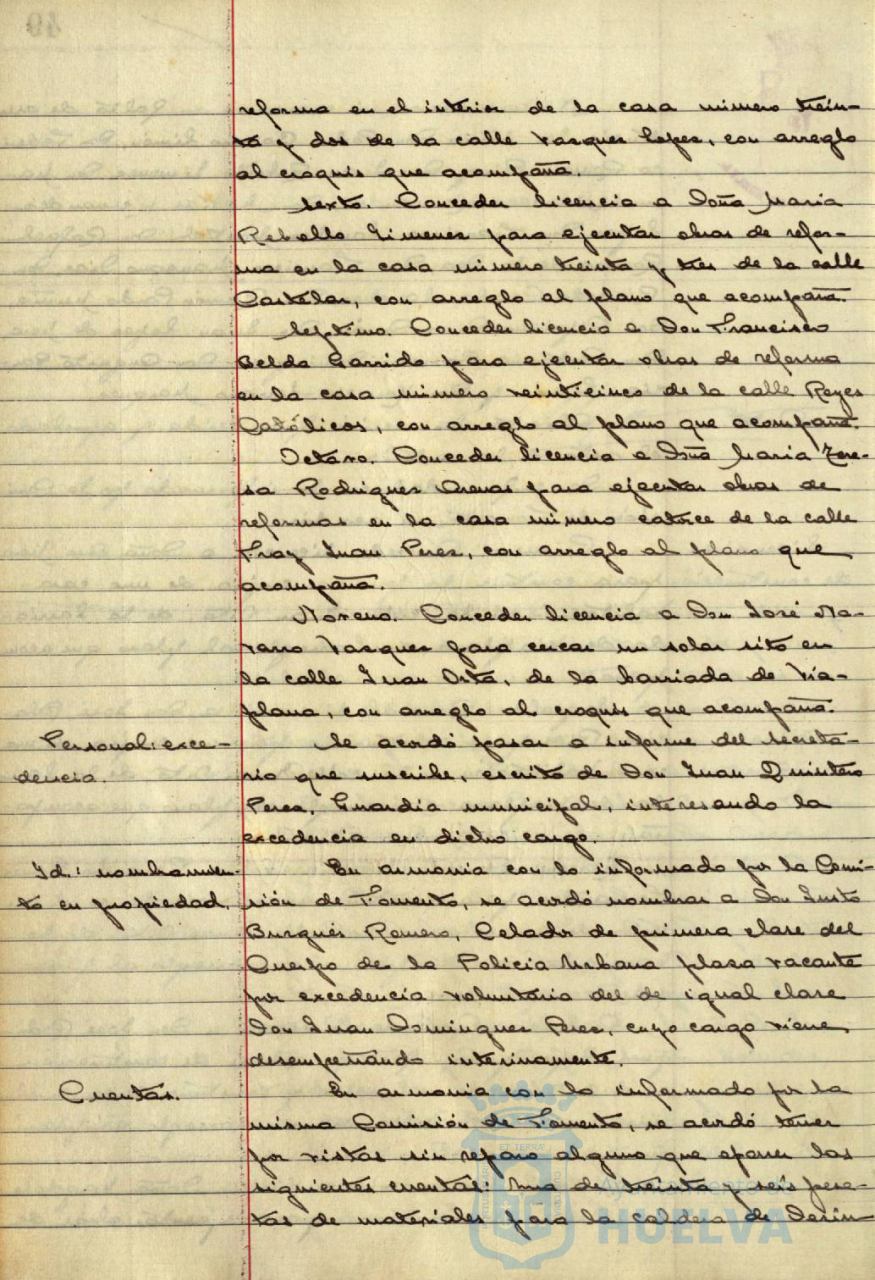 reforma en el interior de la casa número trein-
ta y dos de la calle Vasquez Lopez, con arreglo
al croquis que acompaña.
Sexto. Conceder licencia a Doña Maria
Rebollo Jimenez para ejecutar obras de refor-
ma en la casa número treinta y tres de la calle
Castelar, con arreglo al plano que acompaña.
Septimo. Conceder licencia a Don Francisco
Belda Garrido para ejecutar obras de reforma
en la casa número veinticinco de la calle Reyes
Católicos, con arreglo al plano que acompaña.
Octavo. Conceder licencia a Doña Maria Tere-
sa Rodriguez Arenas para ejecutar obras de
reformas en la casa número catorce de la calle
Fray Juan Perez, con arreglo al plano que
acompaña.
Noveno. Conceder licencia a Don José Na-
varro Vasquez para cercar un solar sito en
la calle Juan Orta, de la barriada de Via-
plana, con arreglo al croquis que acompaña.
Personal: exce-
dencia.
Se acordó pasar a informe del Secreta-
rio que suscribe, escrito de Don Juan Quintero
Perea, Guardia municipal, interesando la
excedencia en dicho cargo.
Id.: nombramien-
to en propiedad.
En armonia con lo informado por la Comi-
sión de Fomento, se acordó nombrar a Don Justo
Burgués Romero, Celador de primera clase del
Cuerpo de la Policia Urbana plaza vacante
por excedencia voluntaria del de igual clase
Don Juan Dominguez Perez, cuyo cargo viene
desempeñando interinamente.
Cuentas.
En armonia con lo informado por la
misma Comisión de Fomento, se acordó tener
por vistas sin reparo alguno que oponer las
siguientes cuentas: Una de treinta y seis pese-
tas de materiales para la caldera de Desin-
HUELVA